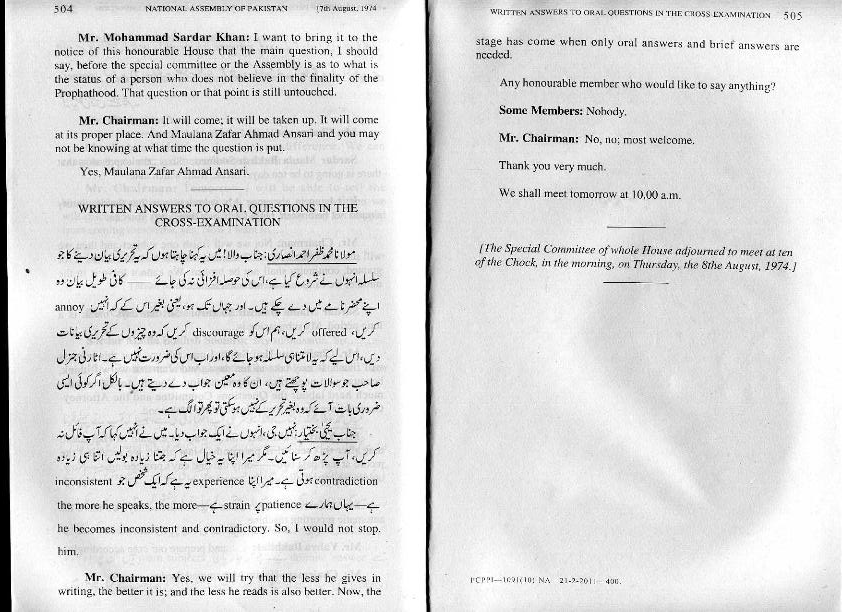 504 NATIONAL ASSEMBLY OF PAKISTAN 17th August, 1974
Mr. Mohammad Sardar Khan: I want to bring it to the
notice of this honourable House that the main question, I should
say, before the special committee or the Assembly is as to what is
the status of a person who does not believe in the finality of the
Prophathood. That question or that point is still untouched.
Mr. Chairman: It will come; it will be taken up. It will come
at its proper place. And Maulana Zafar Ahmad Ansari and you may
not be knowing at what time the question is put.
Yes, Maulana Zafar Ahmad Ansari.
WRITTEN ANSWERS TO ORAL QUESTIONS IN THE
CROSS-EXAMINATION
مولانا محمد ظفر احمد انصاری: جناب والا! میں یہ کہنا چاہتا ہوں کہ یہ تحریری بیان دینے کا جو
سلسلہ انہوں نے شروع کیا ہے، اس کی حوصلہ افزائی نہ کی جائے —— کافی طویل بیان وہ
اپنے محضر نامے میں دے چکے ہیں۔ اور جہاں تک ہو، یعنی بغیر اس کے کہ انہیں annoy
کریں، offered کریں، ہم اس کو discourage کریں کہ وہ چیزوں کے تحریری بیانات
دیں، اس لیے کہ یہ لامتناہی سلسلہ ہو جائے گا، اور اب اس کی ضرورت نہیں ہے۔ اٹارنی جنرل
صاحب جو سوالات پوچھتے ہیں، ان کا وہ معین جواب دے دیتے ہیں۔ بالکل اگر کوئی ایسی
ضروری بات آئے کہ وہ بغیر تحریر کے نہیں ہوسکتی تو پھر تو الگ ہے۔
جناب یحییٰ بختیار: نہیں جی، انہوں نے ایک جواب دیا۔ میں نے انہیں کہا کہ آپ فائل نہ
کریں، آپ پڑھ کر سنائیں۔ مگر میرا اپنا یہ خیال ہے کہ جتنا زیادہ بولیں اتنا ہی زیادہ
contradiction ہوتی ہے۔ میرا اپنا experience یہ ہے کہ ایک شخص جو inconsistent
ہے—یہاں ہمارے patience پر strain ہے—the more he speaks, the more
he becomes inconsistent and contradictory. So, I would not stop.
him.
Mr. Chairman: Yes, we will try that the less he gives in
writing, the better it is; and the less he reads is also better. Now, the
WRITTEN ANSWERS TO ORAL QUESTIONS IN THE CROSS-EXAMINATION 505
stage has come when only oral answers and brief answers are
needed.
Any honourable member who would like to say anything?
Some Members: Nobody.
Mr. Chairman: No, no; most welcome.
Thank you very much.
We shall meet tomorrow at 10.00 a.m.
[The Special Committee of whole House adjourned to meet at ten
of the Chock, in the morning, on Thursday, the 8the August, 1974.]
PCPPI—1091(10) NA 21-2-2011 400.